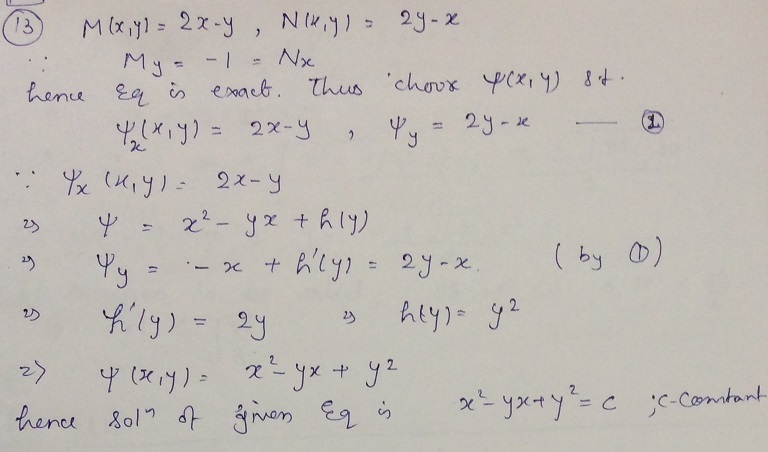 ⑬ M(x,y) = 2x-y , N(x,y) = 2y-x
∵ My = -1 = Nx
hence Eq is exact. Thus choose ψ(x,y) st.
ψx(x,y) = 2x-y , ψy = 2y-x — ①
∵ ψx(x,y) = 2x-y
⇒ ψ = x² - yx + h(y)
⇒ ψy = -x + h'(y) = 2y-x. (by ①)
⇒ h'(y) = 2y ⇒ h(y) = y²
⇒ ψ(x,y) = x² - yx + y²
hence solⁿ of given Eq is x² - yx + y² = c ; c-constant